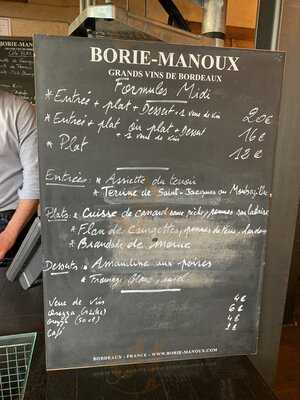 BORIE-MANOUX
GRANDS VINS DE BORDEAUX
Formules Midi
* Entrée + plat + Dessert + 1 verre de vin 20€
* Entrée + plat ou plat + Dessert
+ 1 verre de vin 16€
* Plat 12€
Entrées : * Assiette du terroir
* Terrine de Saint-Jacques au
Plats : * Cuisse de canard sauce pommes sarladaise
* Flan de Courgettes, pommes de terre,
* Brandade de morue
Desserts : * Amandine aux poires
* Fromage Blanc, miel
Verre de vin 4€
orezza 6€
orezza (50cl) 4€
Café
BORDEAUX - FRANCE - WWW.BORIE-MANOUX.COM